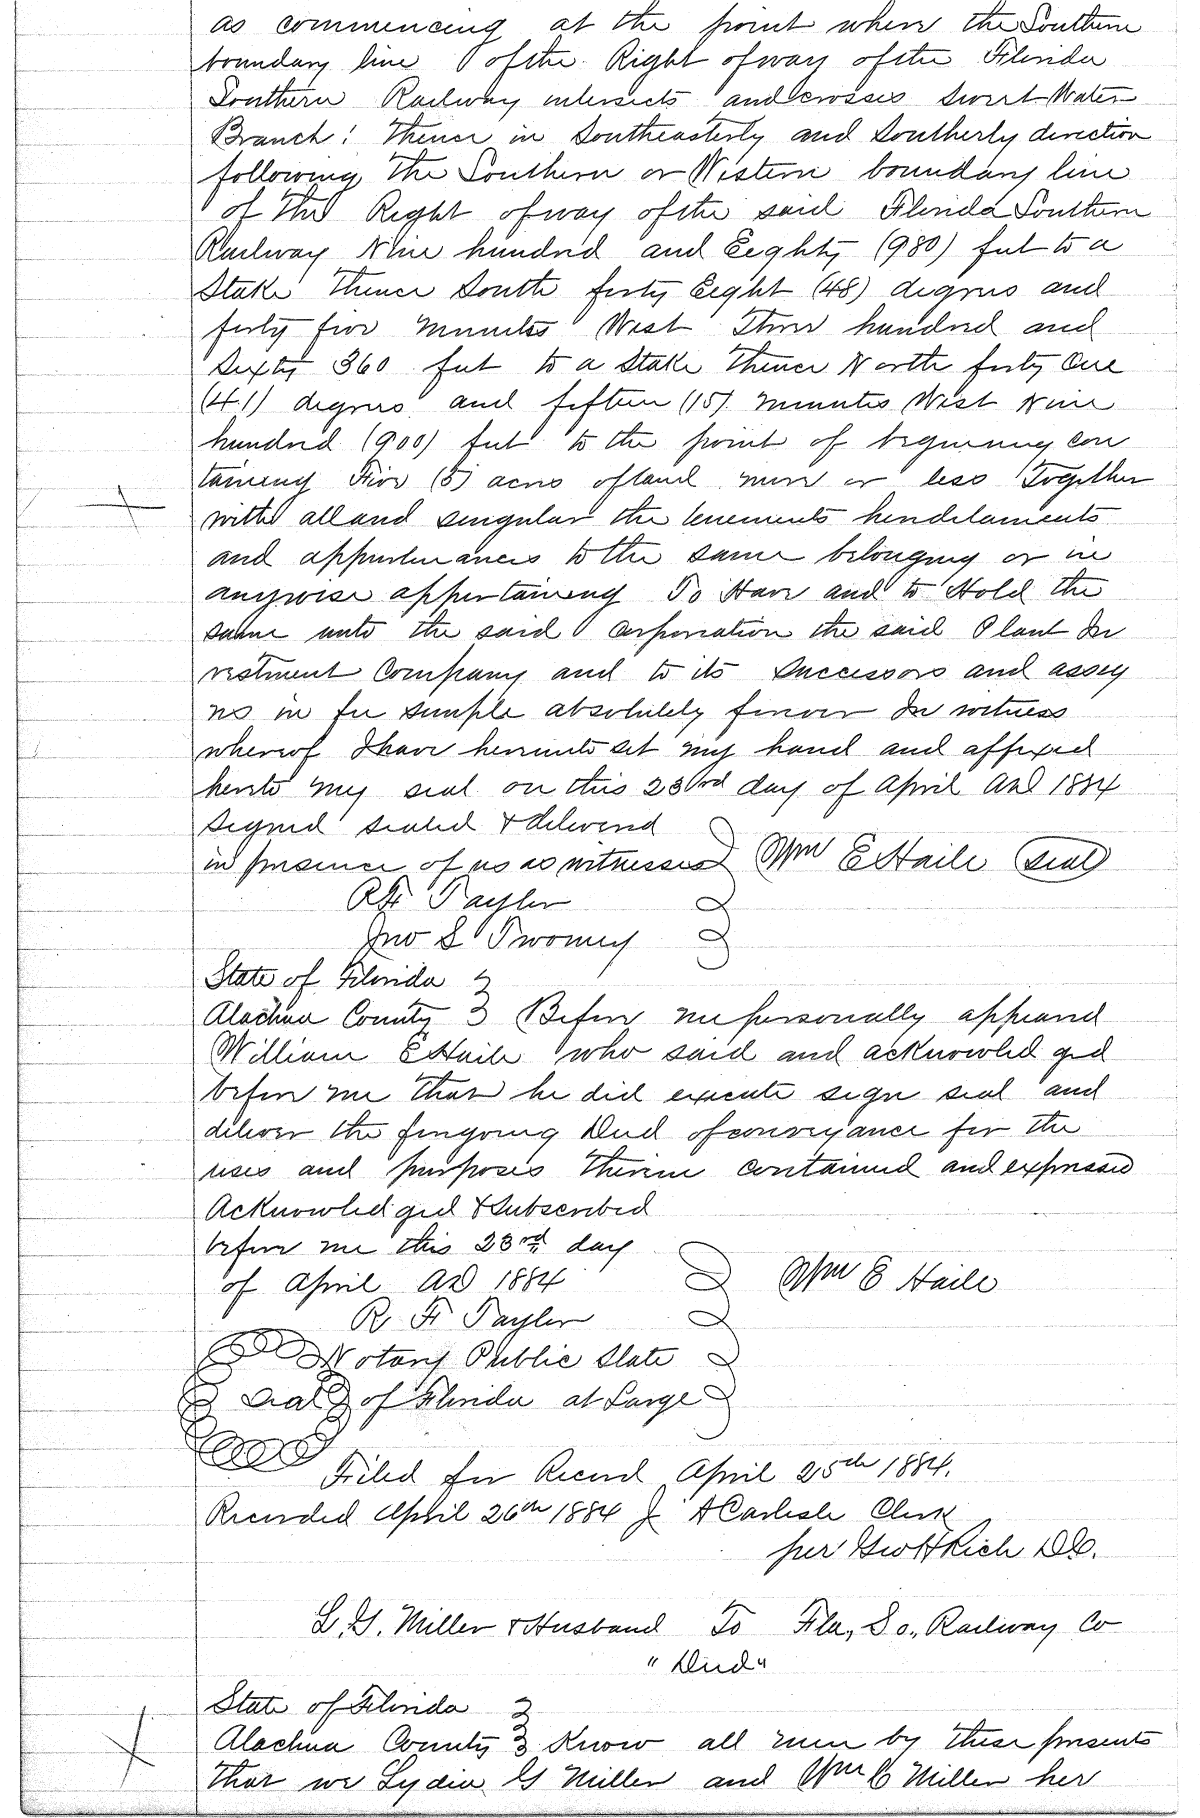 as commencing at the point where the Southern
boundary line of the Right of way of the Florida
Southern Railway intersects and crosses Sweet Water
Branch: Thence in Southeasterly and Southerly direction
following the Southern or Western boundary line
of the Right of way of the said Florida Southern
Railway Nine hundred and Eeghty (980) feet to a
Stake Thence South forty Eeght (48) degrees and
forty five minutes West Three hundred and
Sixty 360 feet to a Stake Thence North forty One
(41) degrees and fifteen (15) minutes West Nine
hundred (900) feet to the point of beginning con
taining Five (5) acres of land more or less Together
with all and singular the tenements hereditaments
and appurtenances to the same belonging or in
anywise appertaining To Have and to Hold the
same unto the said Corporation the said Plant In
vestment Company and to its successors and assig
ns in fee simple absolutely forever In witness
whereof I have hereunto set my hand and affixed
hereto my seal on this 23rd day of April AD 1884
Signed sealed & delivered
in presence of us as witnesses Wm E Haile Seal
R F Tayler
Jno S Twomey
State of Florida
Alachua County Before me personally appeared
William E Haile who said and acknowledged
before me that he did execute sign seal and
deliver the foregoing Deed of conveyance for the
uses and purposes therein contained and expressed
Acknowledged & Subscribed
before me this 23rd day
of April AD 1884 Wm E Haile
R. F. Tayler
Notary Public State
Seal of Florida at Large
Filed for Record April 25th 1884.
Recorded April 26th 1884 J A Carlisle Clerk
per Geo H Rich D.C.
L. G. Miller & Husband To Fla, So., Railway Co
"Deed"
State of Florida
Alachua County Know all men by these presents
that we Lydia G Miller and Wm C Miller her